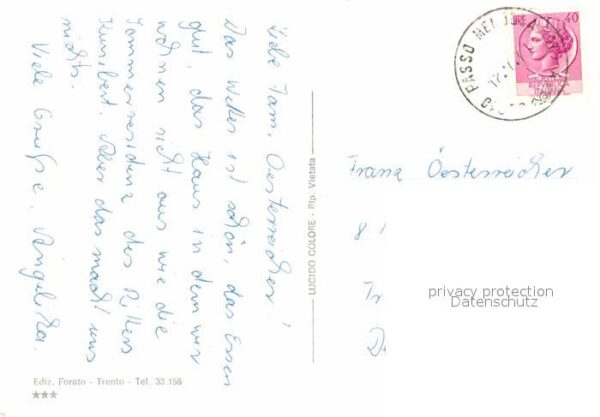 Liebe Fam. Oesterreicher!
Das Wetter ist schön, das Essen
gut, das Haus in dem wir
wohnen sieht aus wie die
Sommerresidenz des Ritters
Kunibert. Aber das macht uns
nichts.
Viele Grüße,
LUCIDO COLORE - Rip. Vietata
Ediz. Forato - Trento - Tel. 33.156
PASSO
40
Franz Österreicher
8
privacy protection
Datenschutz